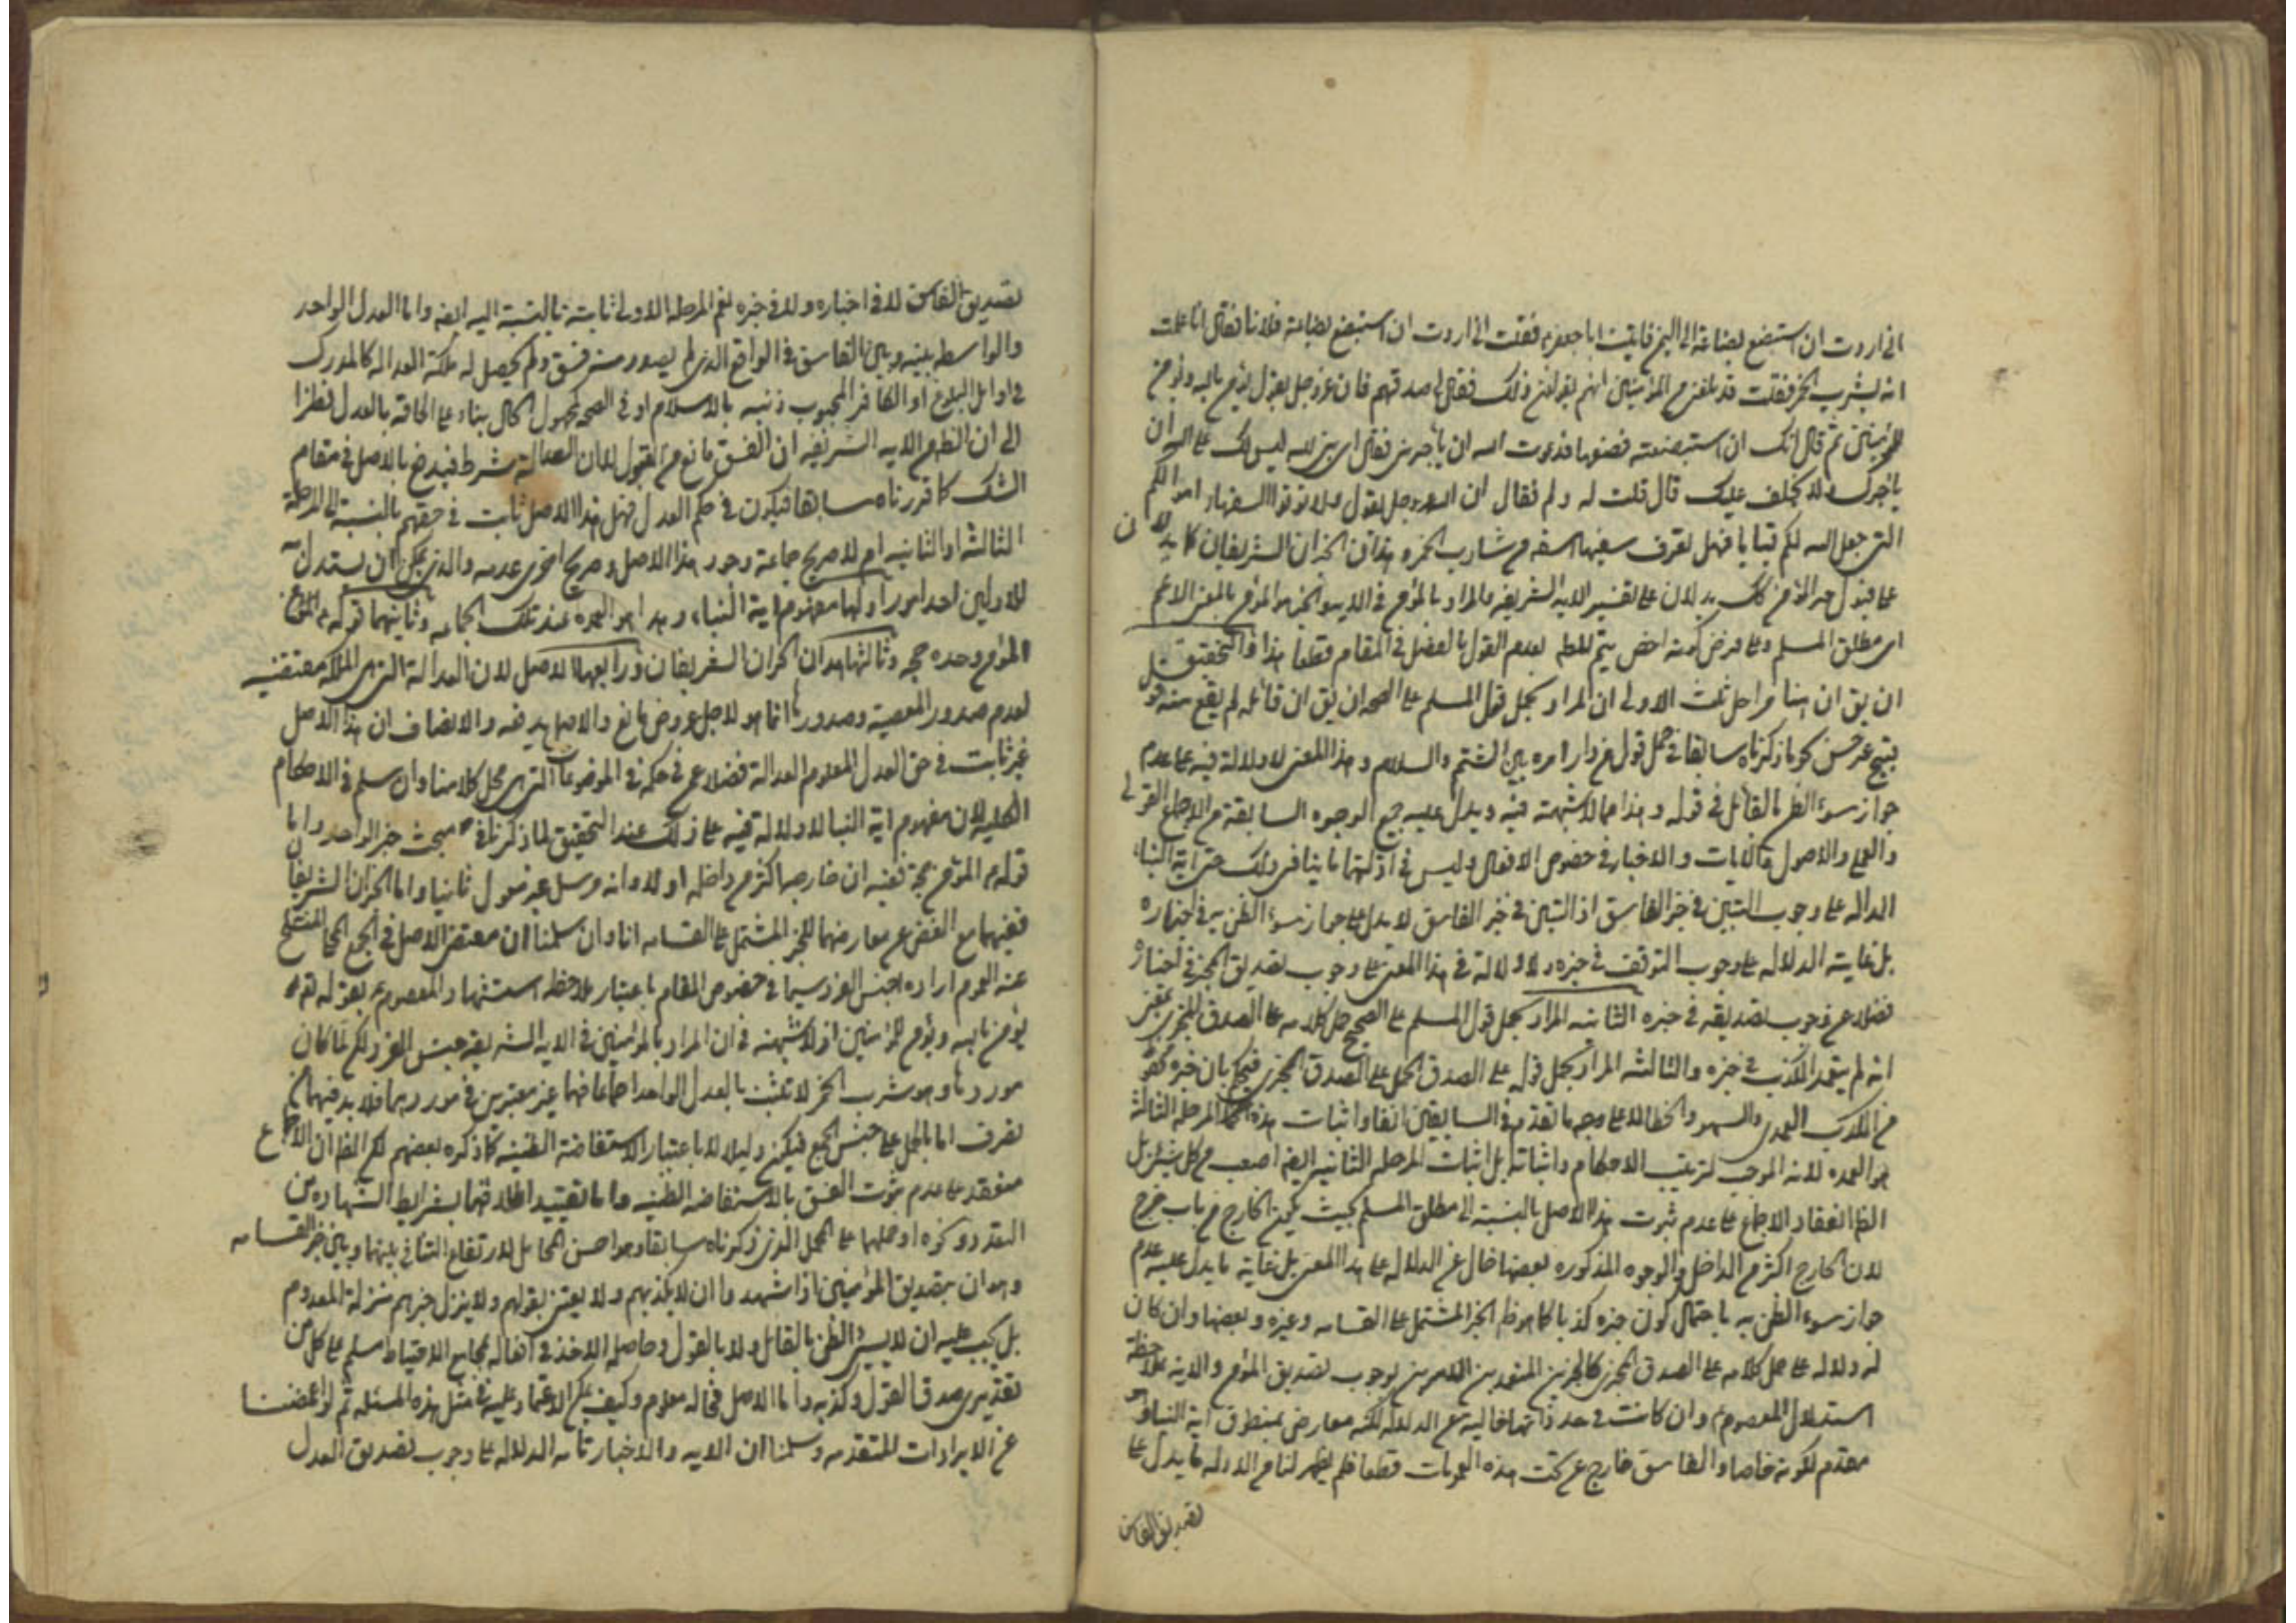 انى اردت ان استبضع بضاعة الى اليمن فاتيت ابا جعفر ع فقلت انى اردت ان استبضع بضاعة فلانا فقال اما علمت
انه يشرب الخمر فقلت قد بلغنى من المؤمنين انهم يقولون ذلك فقال صدقهم فان الله عز وجل يقول يؤمن بالله ويؤمن
للمؤمنين ثم قال انك ان استبضعته فضيعها فدعوت الله ان يأجرنى فقال اى بنى ليس لك على الله ان
ياجرك ولا يخلف عليك قال قلت له ولم فقال ان الله عز وجل يقول ولا تؤتوا السفهاء اموالكم
التى جعل الله لكم قياما فهل تعرف سفيها اسفه من شارب الخمر وهذان الخبران الشريفان كما يدلان
على قبول خبر المؤمن كك يدلان على تفسير الاية الشريفة فالمراد بالمؤمن فى الاية والخبر هو المؤمن بالمعنى الاعم
اى مطلق المسلم وعلى فرض كونه اخص يتم المط لعدم القول بالفصل فى المقام قطعا هذا والتحقيق
ان يق ان هنا مراحل ثلث الاولى ان المراد بحمل قول المسلم على الصحة ان يق ان قائله لم يقع منه
قبيح غير حسن نحو ما ذكرناه سابقا فى حمل قول من دار امره بين الشتم والسلام وهذا المعنى لا دلالة فيه على عدم
جواز سوء الظن بالقائل فى قوله وهذا مما لا شبهة فيه ويدل عليه جميع الوجوه السابقة من الاجماع القولى
والعملى والاصول والايات والاخبار فى خصوص الافعال وليس فى ادلتها ما ينافى ذلك حتى اية النباء
الدالة على وجوب التبين فى خبر الفاسق اذ التبين فى خبر الفاسق لا يدل على جواز سوء الظن به فى اخباره
بل غاية الدلالة على وجوب التوقف فى خبره ولا دلالة فى هذا المعنى على وجوب تصديق المخبر فى اخباره
فضلا عن وجوب تصديقه فى خبره الثانية المراد بحمل قول المسلم على الصحيح حمل كلامه على الصدق المخبرى بمعنى
انه لم يتعمد الكذب فى خبره والثالثة المراد بحمل قوله على الصدق الحمل على الصدق الخبرى فيحكم بان خبره
من الكذب العمدى والسهو والخطا لا على وجه ما تقدم فى السابقين انفا واثبات هذه المرحلة الثالثة
هو العمدة لانه الموجب لترتيب الاحكام واثباته بل اثبات المرحلة الثانية ايضا اصعب من كل شىء بل
الظ انعقاد الاجماع على عدم ثبوت هذا الاصل بالنسبة الى مطلق المسلم بحيث يكون الخارج من باب خرج
لان الخارج اكثر من الداخل والوجوه المذكورة بعضها خال عن الدلالة على هذا المعنى بل غاية ما يدل عليه عدم
جواز سوء الظن به باحتمال كون خبره كذبا كما هو ظ الخبر المشتمل على القسامة وغيره وبعضها وان كان
له دلالة على حمل كلامه على الصدق الخبرى كالخبرين المتقدمين الامرين بوجوب تصديق المؤمن والاية بملاحظة
استدلال المعصوم وان كانت فى حد ذاتها خالية عن الدلالة لكنه معارض بمنطوق اية النبا وهو
مقدم لكونه خاصا والفاسق خارج عن تحت هذه العمومات قطعا فلم يظهر لنا من الادلة ما يدل على
تصديق الفاسق
تصديق الفاسق لا فى اخباره ولا فى خبره نعم المرحلة الاولى ثابتة بالنسبة اليه ايضه واما العدل الواحد
والواسطة بينه وبين الفاسق فى الواقع الذى لم يصدر منه فسق ولم يحصل له ملكة العدالة كالمدرك
فى اوايل البلوغ او الكافر المجبوب ذنبه بالاسلام او فى الصحة كمجهول الحال بناء على الحاقه بالعدل نظرا
الى ان الظ من الاية الشريفة ان الفسق مانع من القبول لا ان العدالة شرط فيدفع بالاصل فى مقام
الشك كما قررناه سابقا فيكون فى حكم العدل فهل هذا الاصل ثابت فى حقهم بالنسبة الى المرحلة
الثالثة او الثانية ام لا صريح جماعة وجود هذا الاصل وصريح اخرى عدمه والذى يمكن ان يستدل به
للاولين احد امور اولها مفهوم اية النباء وهذا هو العمدة عند تلك الجماعة وثانيهما قوله ع المؤمن
المؤمن وحده حجة وثالثها هذان الخبران الشريفان ورابعها الاصل لان العدالة التى هى الملكة مقتضية
لعدم صدور المعصية وصدورها انما هو لاجل عروض مانع والاصل يدفعه والانصاف ان هذا الاصل
غير ثابت فى حق العدل المعلوم العدالة فضلا عمن فى حكمه فى الموضوعات التى هى محل كلامنا وان سلم فى الاحكام
الكلية لان مفهوم اية النبا لا دلالة فيه على ذلك عند التحقيق لما ذكرناه فى مبحث خبر الواحد واما
قوله ع المؤمن حجة ففيه ان خارجه اكثر من داخله اولا وانه مرسل غير مقبول ثانيا واما الخبران الشريفان
ففيهما مع الغض عن معارضتهما للخبر المشتمل على القسامة انا وان سلمنا ان مقتضى الاصل فى الجمع المحلى المنسلخ
عنه العموم ارادة جنس الفرد سيما فى خصوص المقام باعتبار ملاحظة استشهاد المعصوم ع بقوله تعه
يؤمن بالله ويؤمن للمؤمنين اذ لا شبهة فى ان المراد بالمؤمنين فى الاية الشريفة جنس الفرد لكن لما كان
موردها وهو شرب الخمر لا تثبت بالعدل الواحد اجماعا فهما غير معتبرين فى موردهما فلا بد فيهما من
تصرف اما بالحمل على جنس الجمع فيكون دليلا لا باعتبار الاستفاضة الظنية كما ذكره بعضهم لكن الظ ان الاجماع
منعقد على عدم ثبوت الفسق بالاستفاضة الظنية واما بتقييد اطلاقهما بشرايط الشهادة من
التعدد ونحوه او حملهما على المحمل الذى ذكرناه سابقا وهو احسن المحامل لارتفاع التنافى بينهما وبين خبر القسامة
وهو ان تصديق المؤمنين اذا شهدوا ان لا يكذبهم ولا يعتنى بقولهم ولا ينزل خبرهم منزلة المعدوم
بل يجب عليه ان لا يسيئ الظن بالقائل ولا بالقول وحاصله الاخذ فى افعاله بمجامع الاحتياط مسلم على كل من
تقديرى صدق القول وكذبه واما الاصل فحاله معلوم وكيف يمكن الاعتماد عليه فى مثل هذه المسئلة ثم لو اغمضنا
عن الايرادات المتقدمة وسلمنا ان الاية والاخبار تامة الدلالة على وجوب تصديق العدل